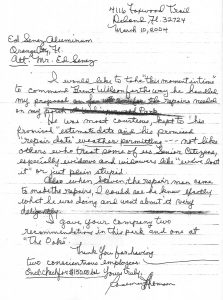 4116 Foxwood Trail
Deland, Fl. 32724
March 10, 2004
Ed Senez Aluminum
Orange City, Fl.
Att: Mr. Ed Senez
I would like to take this moment in time
to commend Brent Wilson for the way he handled
my proposal on the repairs needed
on my
He was most courteous, kept to his
promised estimate date and his promised
"repair date" weather permitting --- not like
others who treat some of us Senior Citizens,
especially widows and widowers like "we've lost
it" or just plain stupid.
Also when the repair man came
to make the repairs, I could see he knew exactly
what he was doing and went about it very
I gave your company two
recommendations in this park and one at
"The Oaks".
Thank You for having
two conscientious employees.
Yours truly,